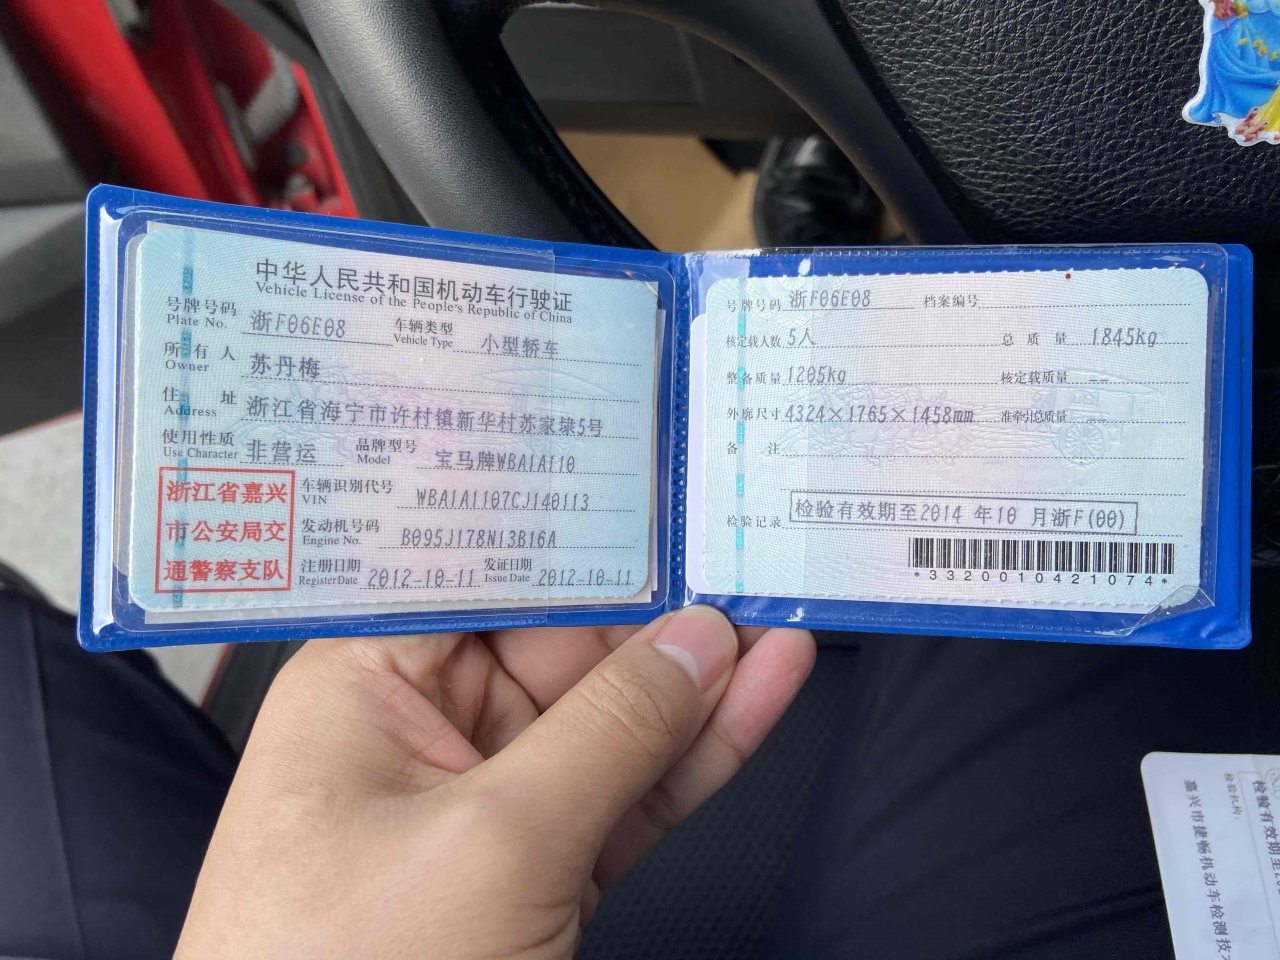 中华人民共和国机动车行驶证
Vehicle License of the People's Republic of China
号牌号码 浙F06E08 车辆类型 小型轿车
Plate No. Vehicle Type
所有人 苏丹梅
Owner
住址 浙江省海宁市许村镇新华村苏家埭5号
Address
使用性质 非营运 品牌型号 宝马牌WBA1A110
Use Character Model
浙江省嘉兴
市公安局交
通警察支队
车辆识别代号 WBA1A1107CJ140113
VIN
发动机号码 B095J178N13B16A
Engine No.
注册日期 2012-10-11 发证日期 2012-10-11
Register Date Issue Date
号牌号码 浙F06E08 档案编号
核定载人数 5人 总质量 1845kg
整备质量 1205kg 核定载质量 --
外廓尺寸 4324×1765×1458mm 准牵引总质量 --
备注
检验记录 检验有效期至2014年10月浙F(00)
*3320010421074*
检验有效期至20
检验机构:
嘉兴市捷畅机动车检测技